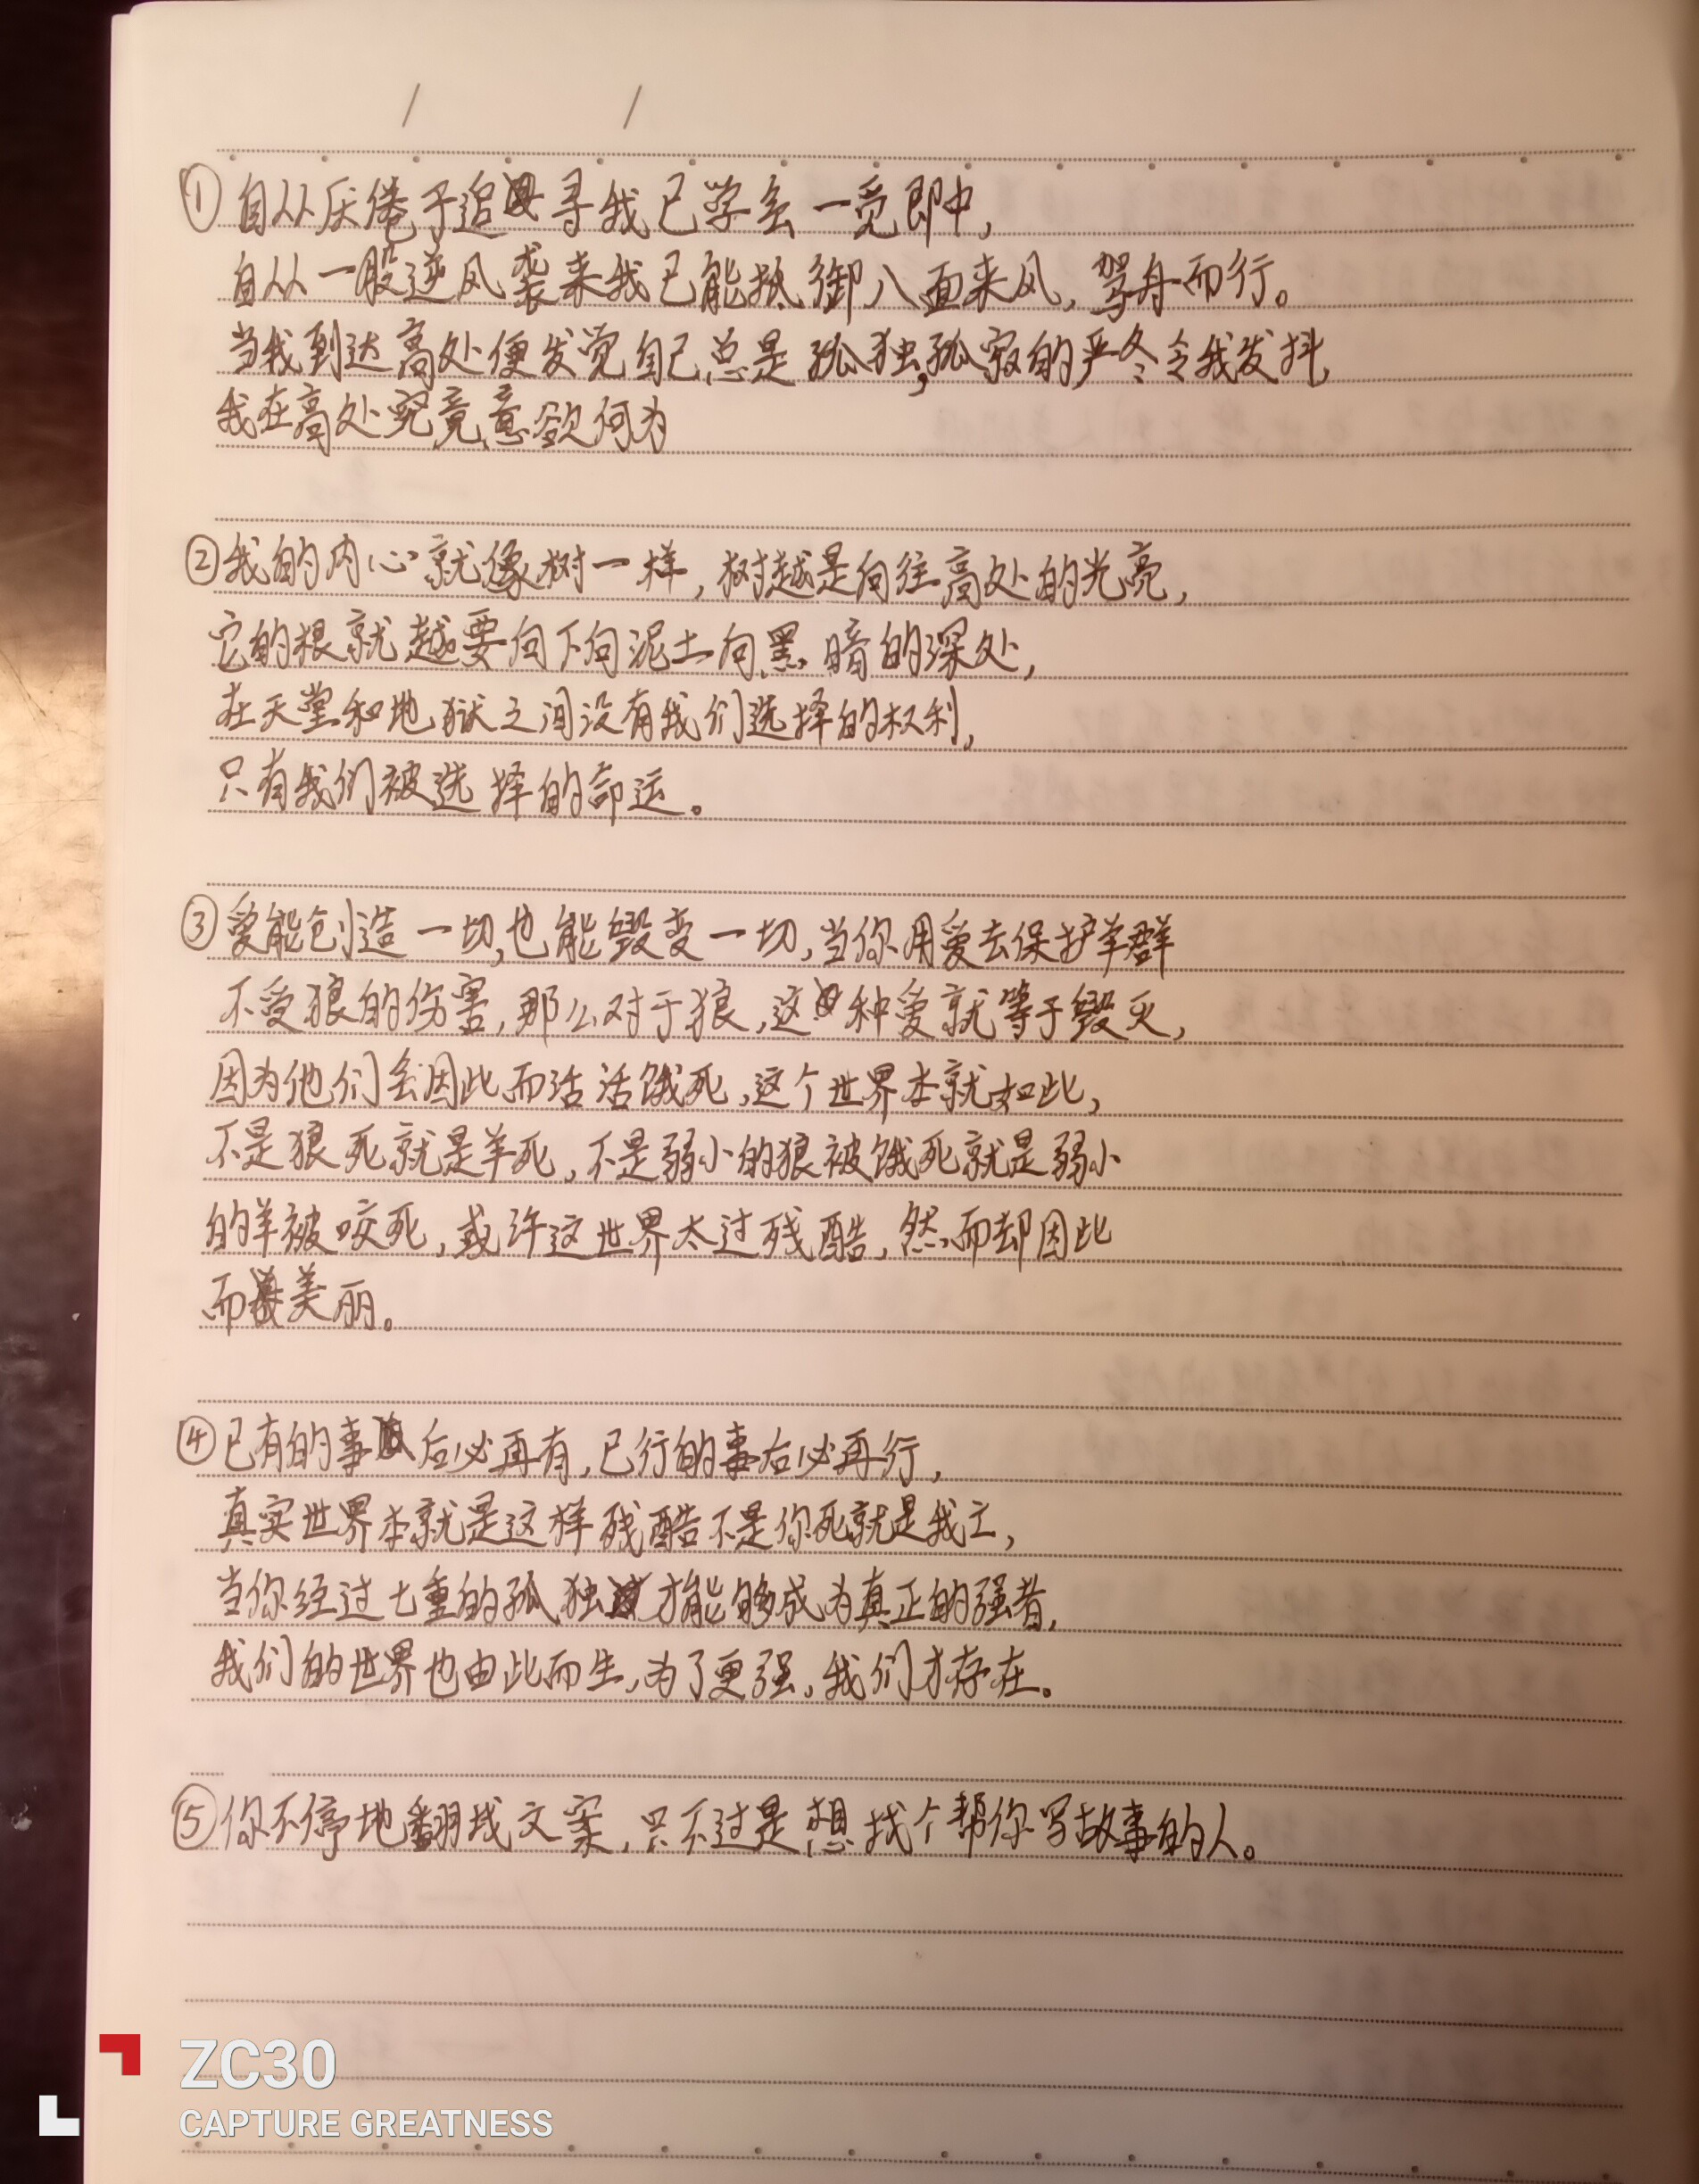 ①自从厌倦于追寻我已学会一觅即中,
自从一股逆风袭来我已能抵御八面来风,驾舟而行。
当我到达高处便发觉自己总是孤独,孤寂的严冬令我发抖,
我在高处究竟意欲何为
②我的内心就像树一样,树越是向往高处的光亮,
它的根就越要向下向泥土向黑暗的深处,
在天堂和地狱之间没有我们选择的权利,
只有我们被选择的命运。
③爱能创造一切,也能毁变一切,当你用爱去保护羊群
不受狼的伤害,那么对于狼,这种爱就等于毁灭,
因为他们会因此而活活饿死,这个世界本就如此,
不是狼死就是羊死,不是弱小的狼被饿死就是弱小
的羊被咬死,或许这世界太过残酷,然而却因此
而美丽。
④已有的事后必再有,已行的事后必再行,
真实世界本就是这样残酷不是你死就是我亡,
当你经过七重的孤独才能够成为真正的强者,
我们的世界也由此而生,为了更强,我们才存在。
⑤你不停地翻找文案,只不过是想找个帮你写故事的人。
ZC30
CAPTURE GREATNESS